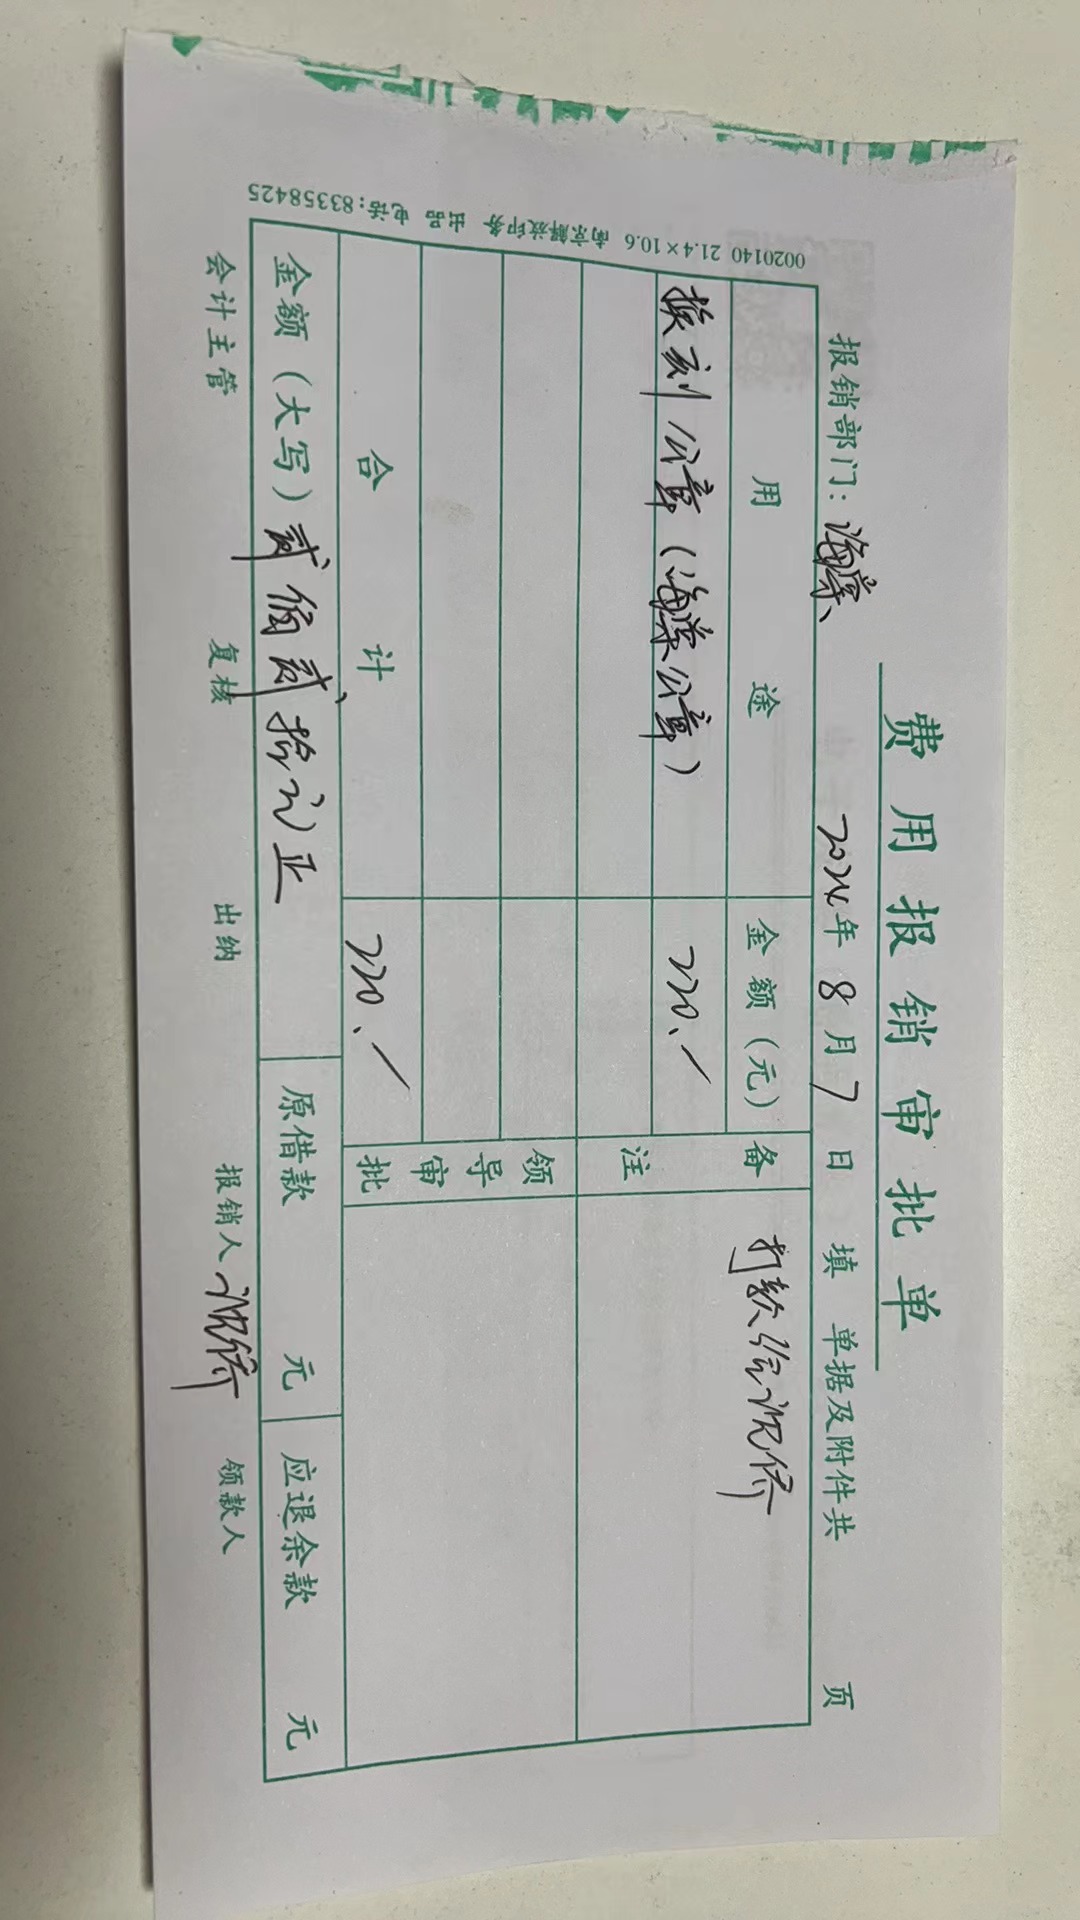 费用报销审批单
报销部门：海棠、 2024年8月7日填 单据及附件共 页
用途 金额(元) 备注
换刻公章(海棠公章) 220.／ 打款给
领导审批
合计 220.／
金额(大写)贰佰贰拾元正 原借款 元 应退余款 元
会计主管 复核 出纳 报销人 领款人
0020140 21.4×10.6 南京解放印务 出品 电话:83358425